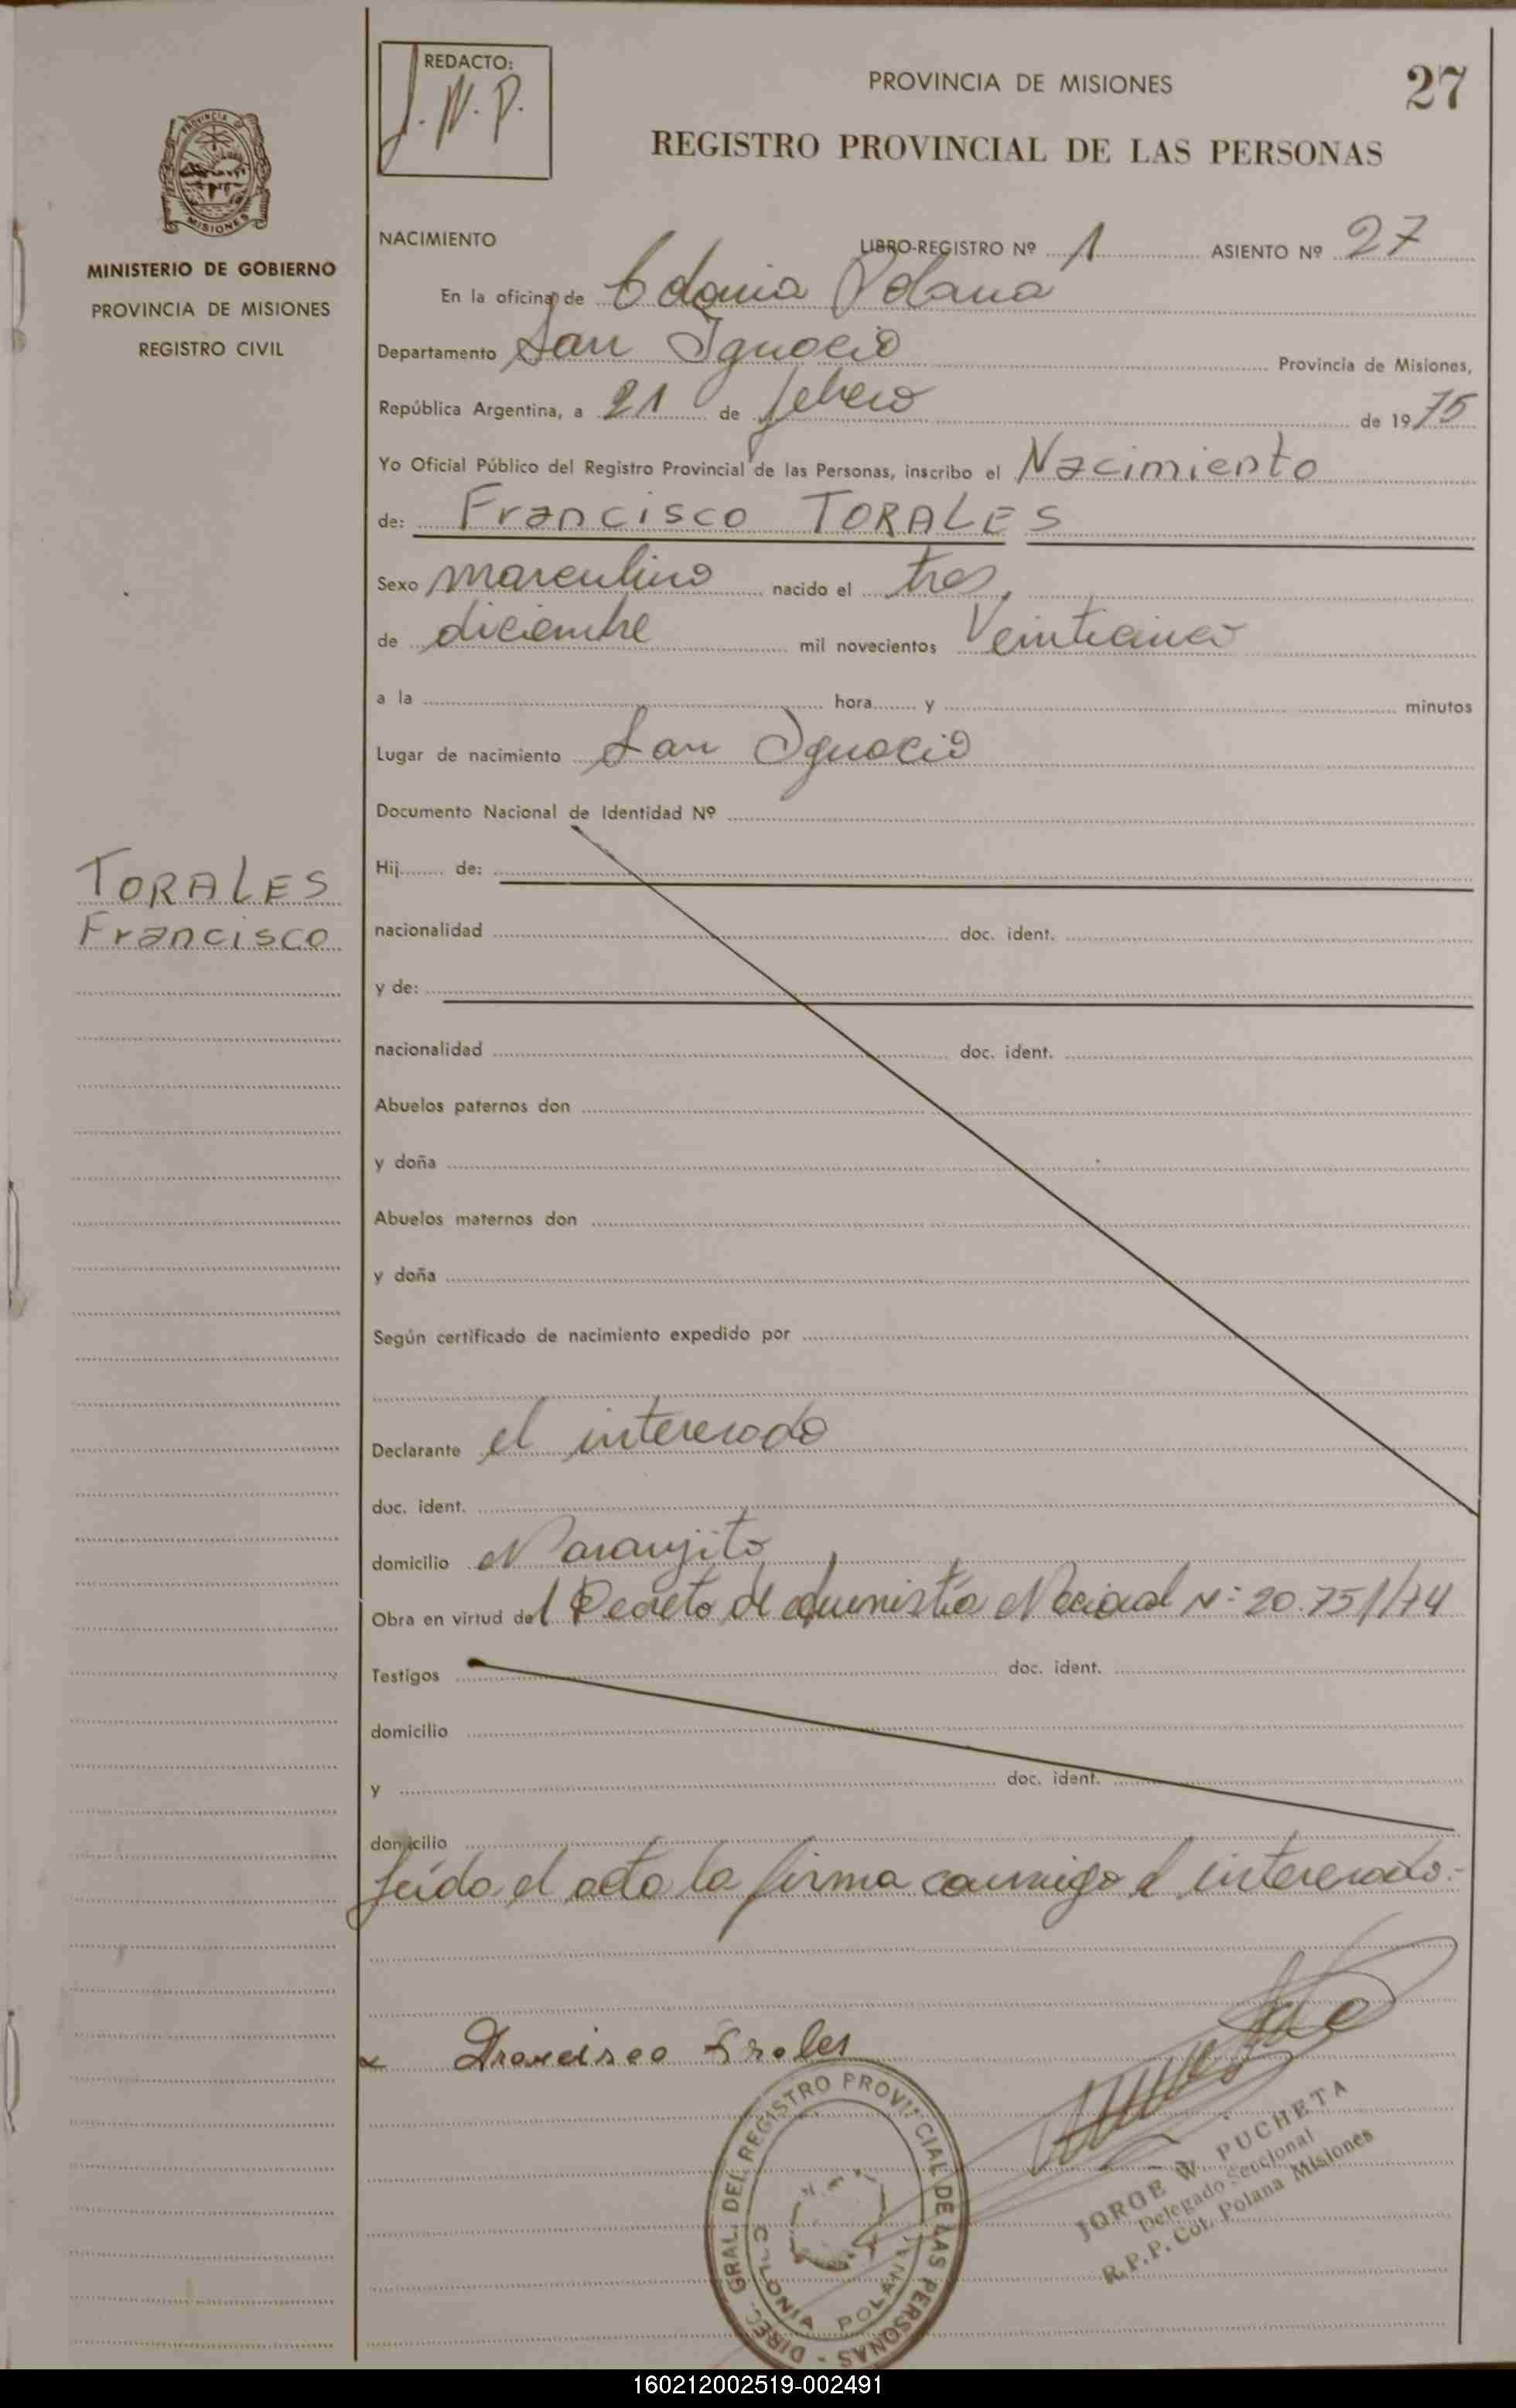 REDACTO:
J.W.P.
PROVINCIA DE MISIONES
27
REGISTRO PROVINCIAL DE LAS PERSONAS
MISIONES
MINISTERIO DE GOBIERNO
PROVINCIA DE MISIONES
REGISTRO CIVIL
NACIMIENTO LIBRO-REGISTRO Nº 1 ASIENTO Nº 27
En la oficina de Colonia Polana
Departamento San Ignacio Provincia de Misiones,
República Argentina, a 21 de febrero de 1975
Yo Oficial Público del Registro Provincial de las Personas, inscribo el Nacimiento
de: Francisco TORALES
Sexo masculino nacido el tres
de diciembre mil novecientos Veinticinco
a la hora y minutos
Lugar de nacimiento San Ignacio
Documento Nacional de Identidad Nº
TORALES
Francisco
Hij de:
nacionalidad doc. ident.
y de:
nacionalidad doc. ident.
Abuelos paternos don
y doña
Abuelos maternos don
y doña
Según certificado de nacimiento expedido por
Declarante el interesado
doc. ident.
domicilio Naranjito
Obra en virtud del Decreto de Amnistía Nacional Nº 20.751/74
Testigos doc. ident.
domicilio
y doc. ident.
domicilio
leída el acta la firma conmigo el interesado.-
x Francisco Torales
DIREC. GRAL. DEL REGISTRO PROVINCIAL DE LAS PERSONAS -
COLONIA POLANA
JORGE W. PUCHETA
Delegado Seccional
R.P.P. Col. Polana Misiones
160212002519-002491